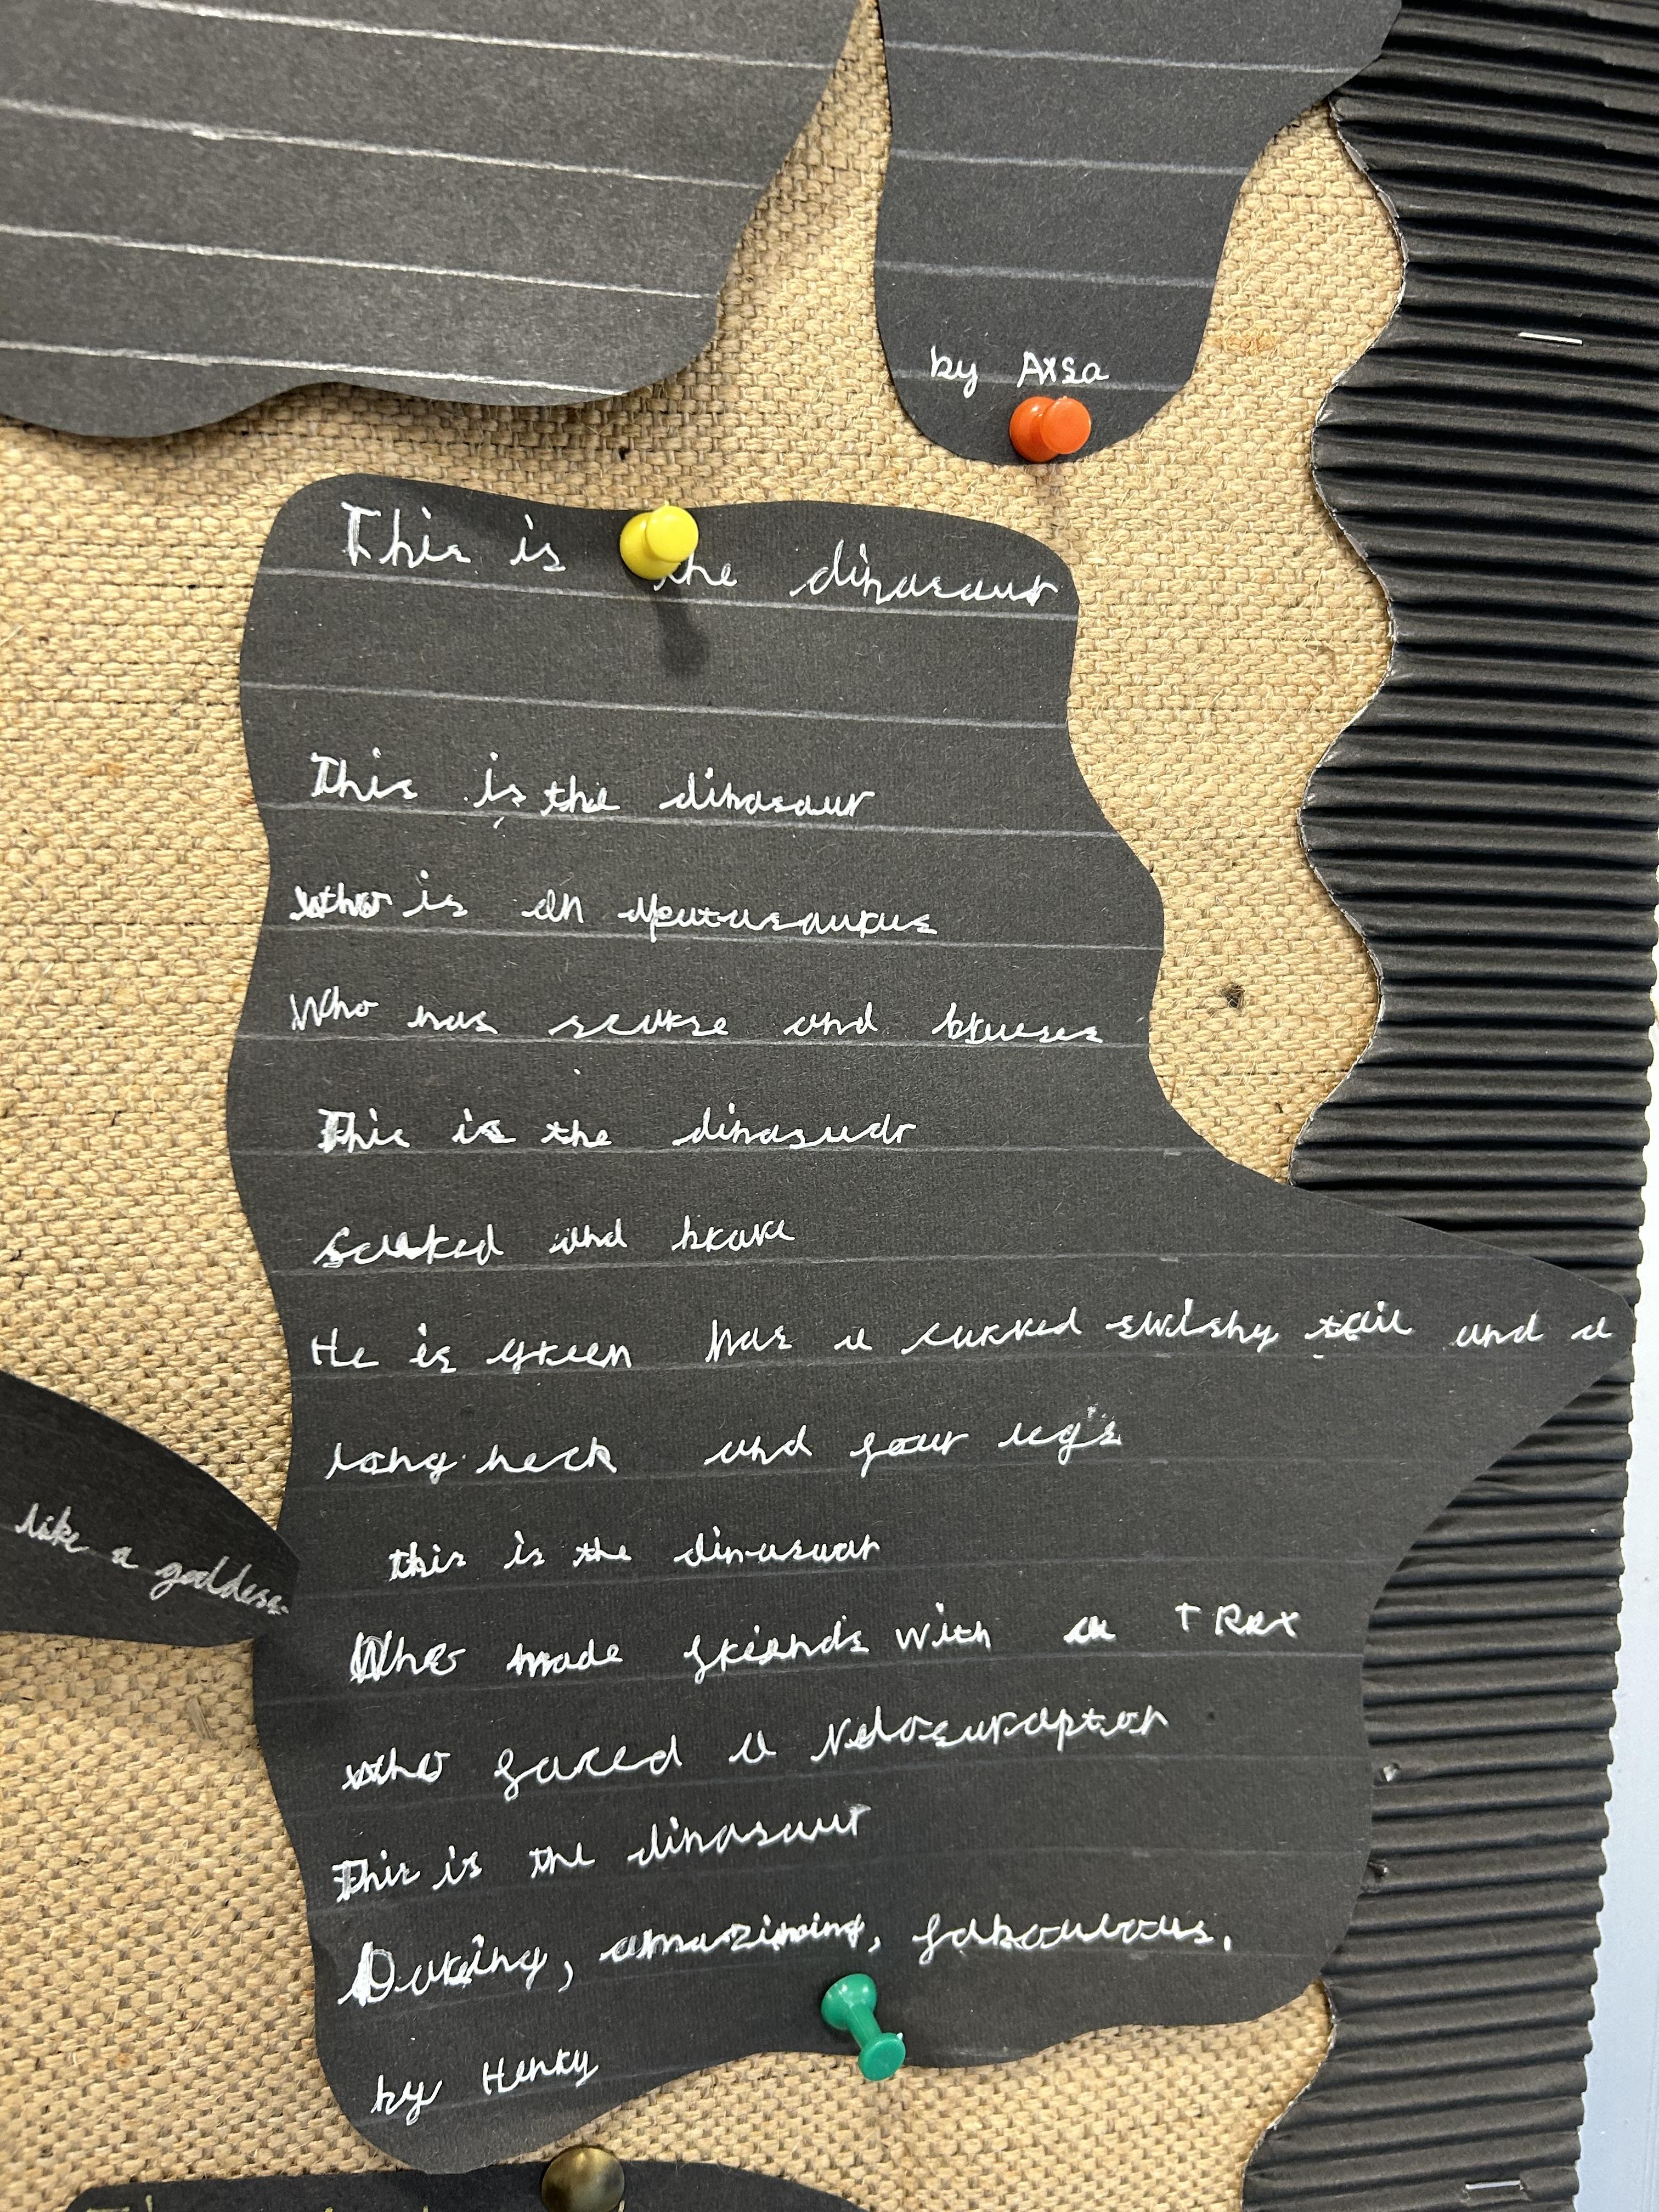 by Axsa
This is the dinasaur
This is the dinasaur
who is an Apatasaurus
Who has scarse and brueses
This is the dinasuar
and brave
He is green has a curved swishy tail and a
long neck and four leg's
this is the dinasuar
Who made friends with a T Rex
who faced a Veloseuraptor
This is the dinasaur
Daring, amazing, faboulous.
by Henry
like a goddess.